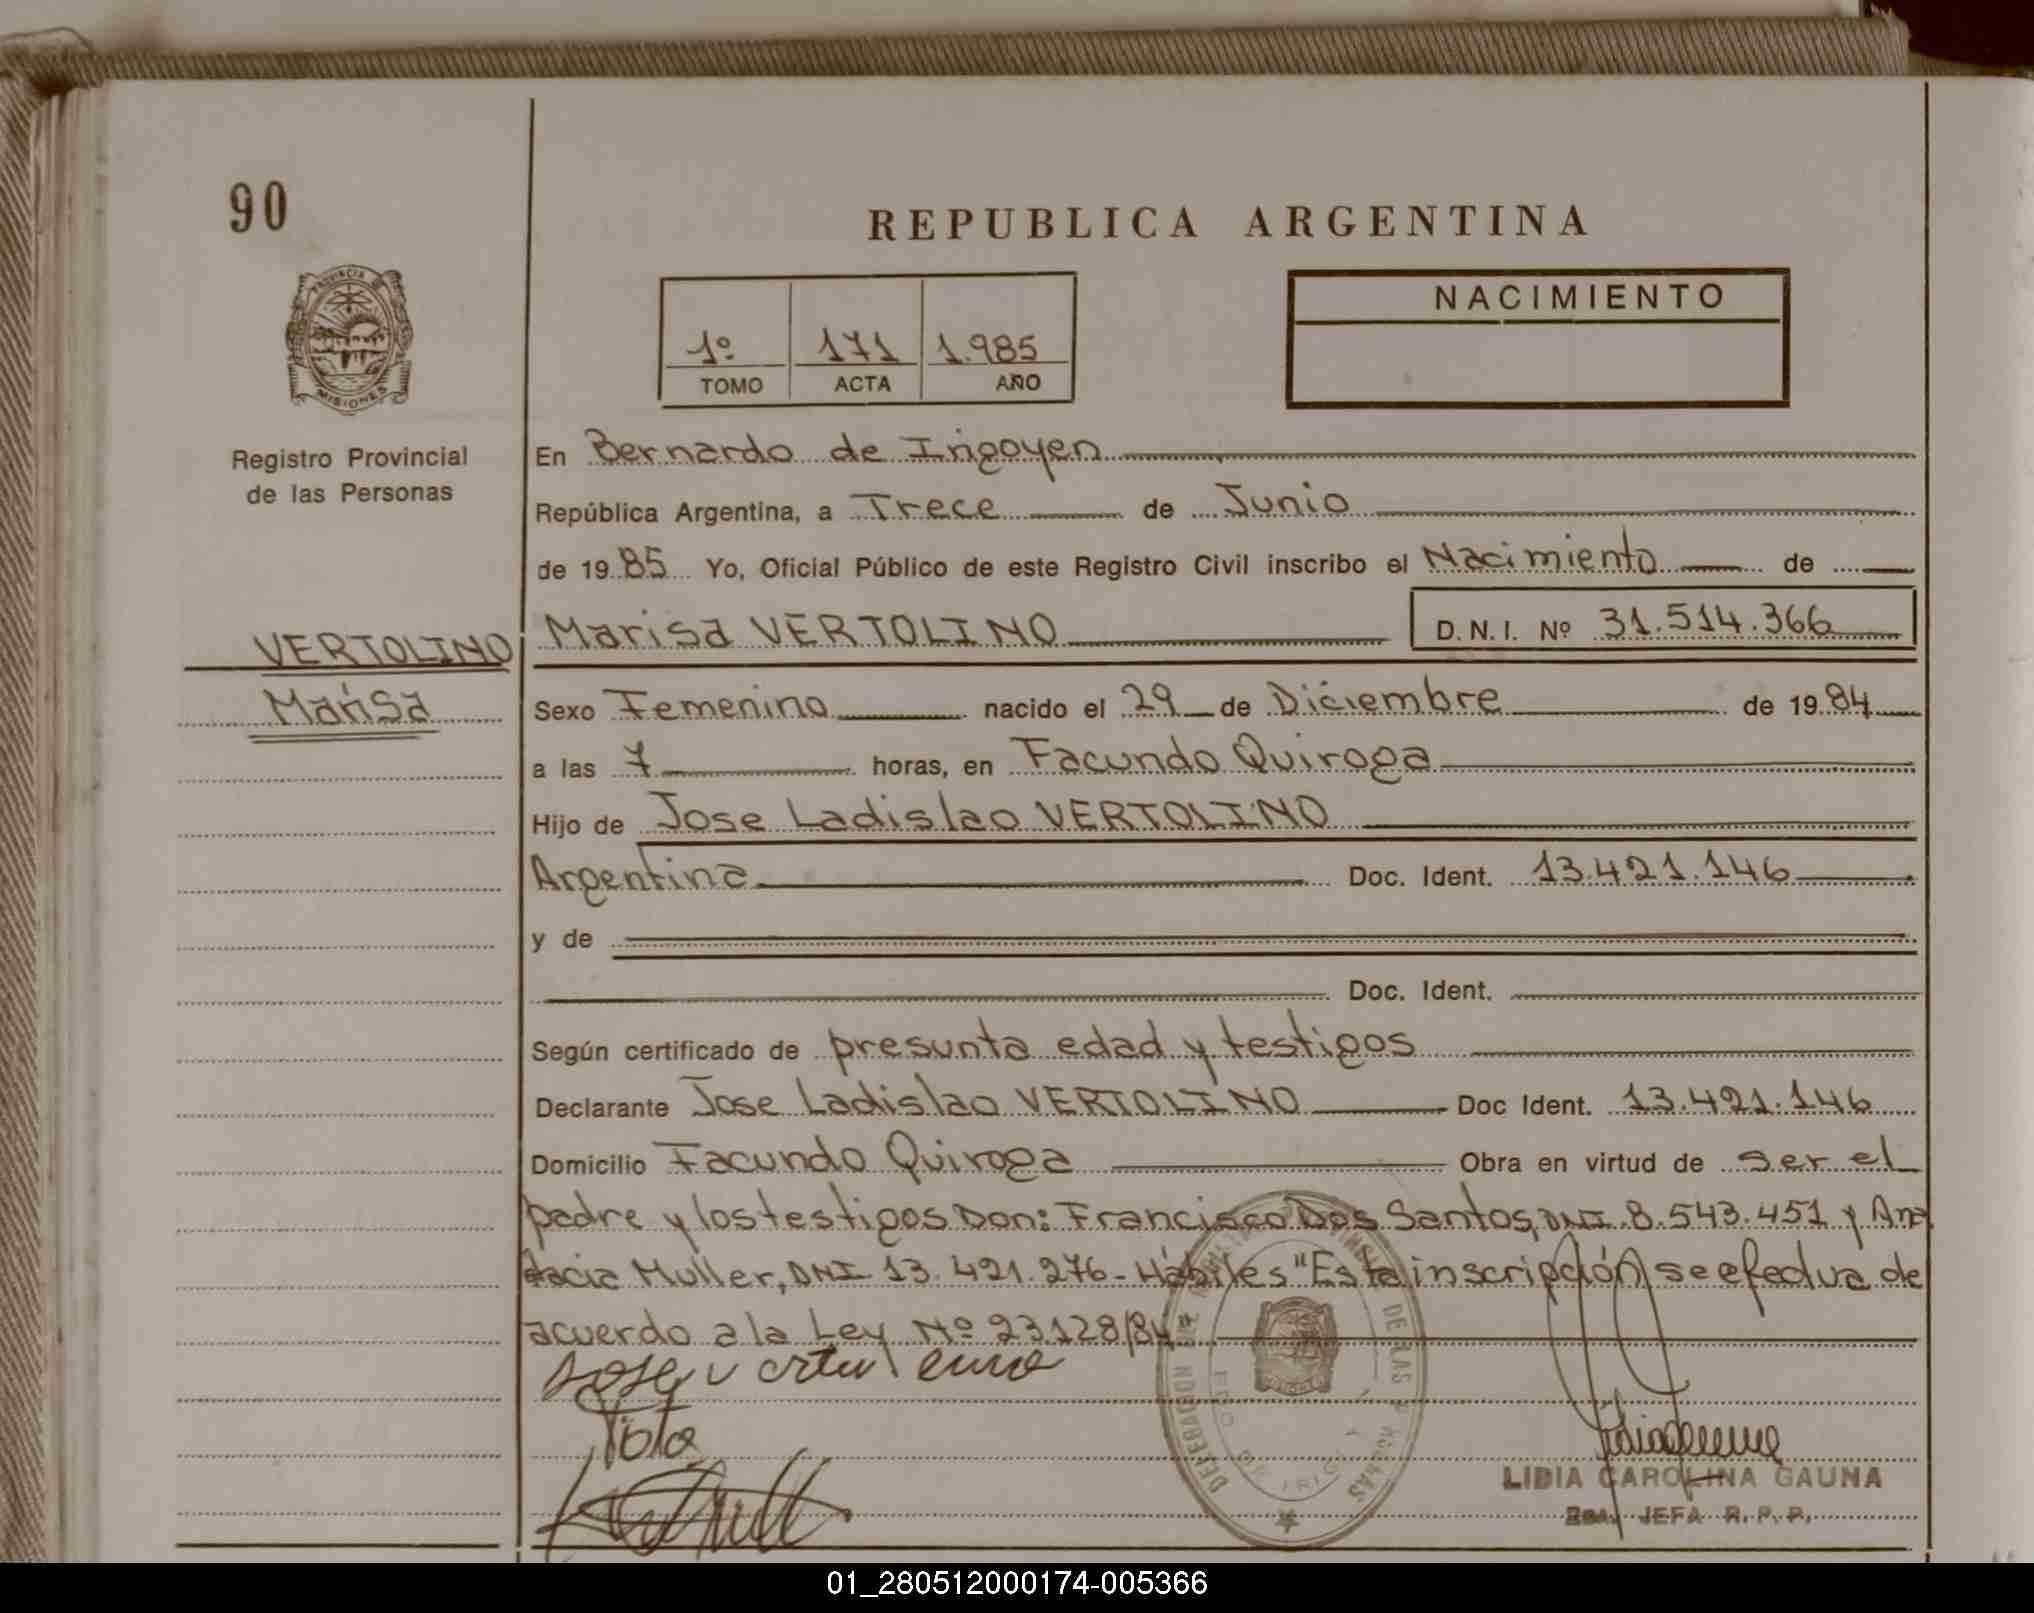 90
REPUBLICA ARGENTINA
PROVINCIA DE
MISIONES
NACIMIENTO
1º 171 1.985
TOMO ACTA AÑO
Registro Provincial
de las Personas
En Bernardo de Irigoyen
República Argentina, a Trece de Junio
de 19 85 Yo, Oficial Público de este Registro Civil inscribo el Nacimiento de
Marisa VERTOLINO D.N.I. Nº 31.514.366
VERTOLINO
Marisa
Sexo Femenino nacido el 29 de Diciembre de 19 84
a las 7 horas, en Facundo Quiroga
Hijo de Jose Ladislao VERTOLINO
Argentina Doc. Ident. 13.421.146
y de
Doc. Ident.
Según certificado de presunta edad y testigos
Declarante Jose Ladislao VERTOLINO Doc Ident. 13.421.146
Domicilio Facundo Quiroga Obra en virtud de ser el
padre y los testigos Don: Francisco Dos Santos, DNI 8.543.451 y Ana
tacia Muller, DNI 13.421.276- Hábiles "Esta inscripción se efectua de
acuerdo a la Ley Nº 23128/84"
Jose
LIDIA CAROLINA GAUNA
2da. JEFA R.P.P.
01_280512000174-005366